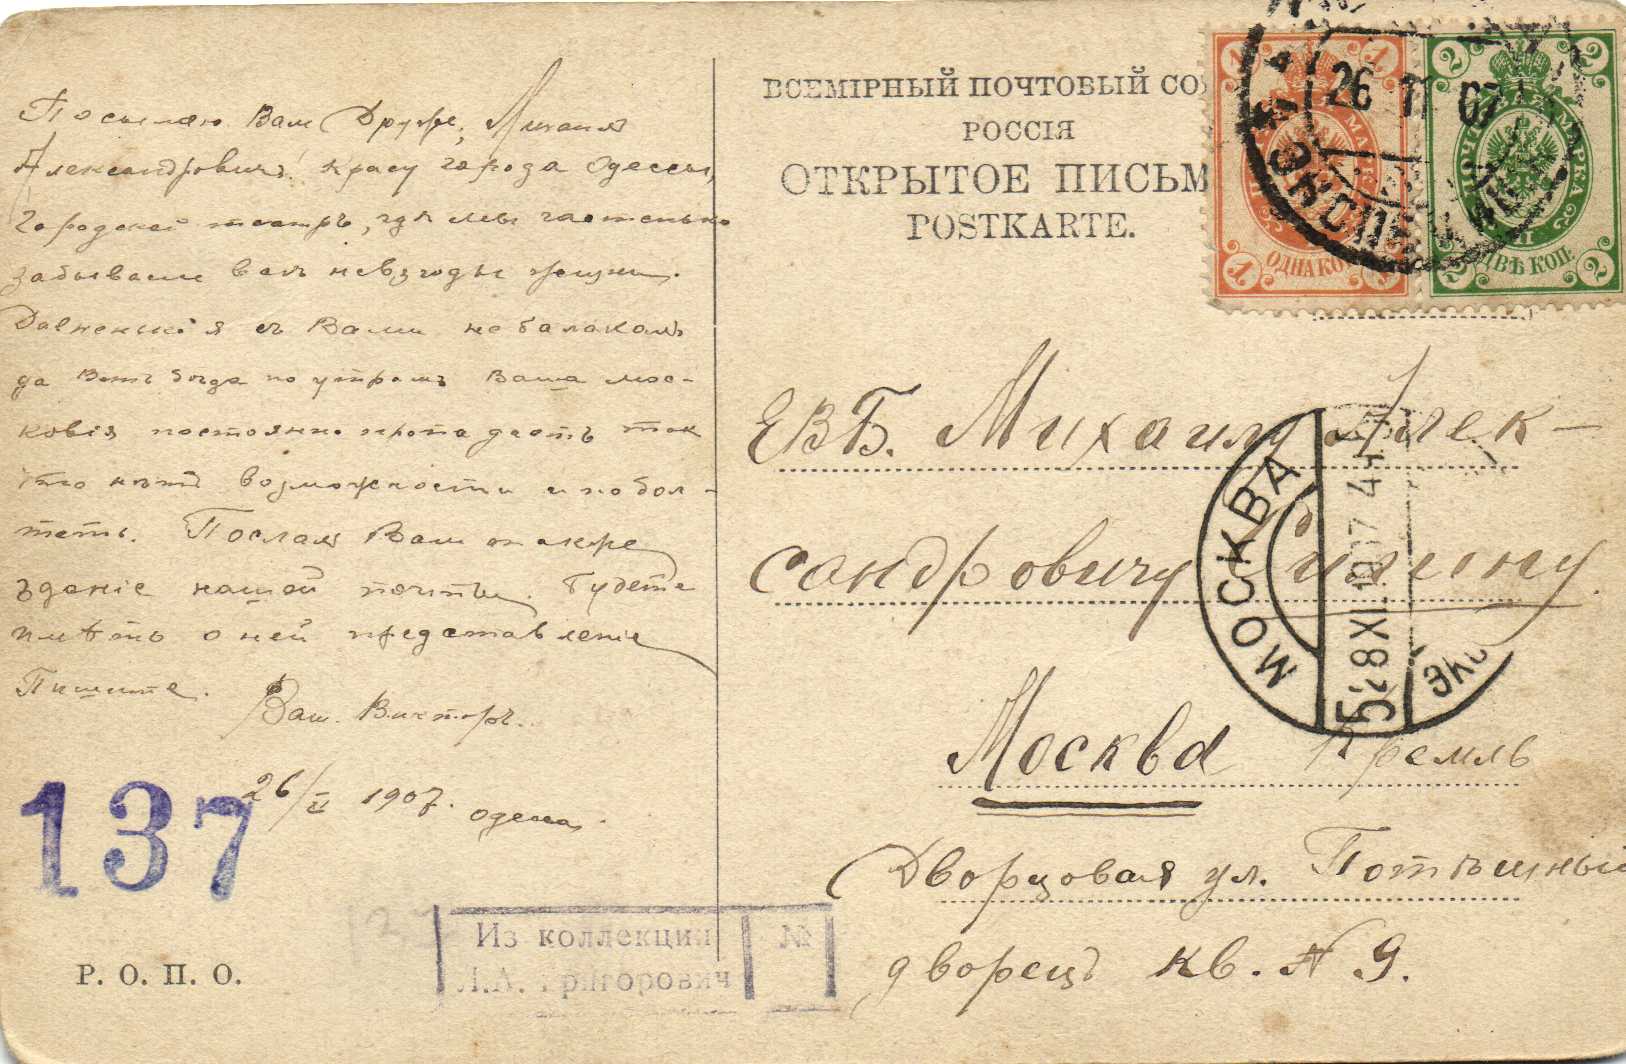 Посылаю Вам Друже, Михаил
Александровичъ! красу города Одессы,
городской театръ, гдѣ мы частенько
забываем всѣ невзгоды жизни.
Давненько я съ Вами не балакалъ
да вотъ бѣда по утрамъ Ваша мос-
ковія постоянно пропадаетъ так
что нѣтъ возможности и побол-
тать. Послал Вам
зданіе нашей почты. Будете
имѣть о ней представленіе
Пишите. Ваш. Викторъ.
26/XI 1907. Одесса.
137
Р. О. П. О.
Из коллекции №
Л.А. Григорович
ВСЕМІРНЫЙ ПОЧТОВЫЙ СО
РОССІЯ
ОТКРЫТОЕ ПИСЬМ
POSTKARTE.
1 1 МАРКА ОДНА КО 1
2 2 ПОЧТ МАРКА ДВѢ КОП. 2 2
26 11 07
ЭКСПЕД
ЕВБ. Михаилу Алек-
сандровичу
МОСКВА
28 XI. 1907
Москва Кремль
Дворцовая ул. Потѣшный
дворецъ кв. № 9.